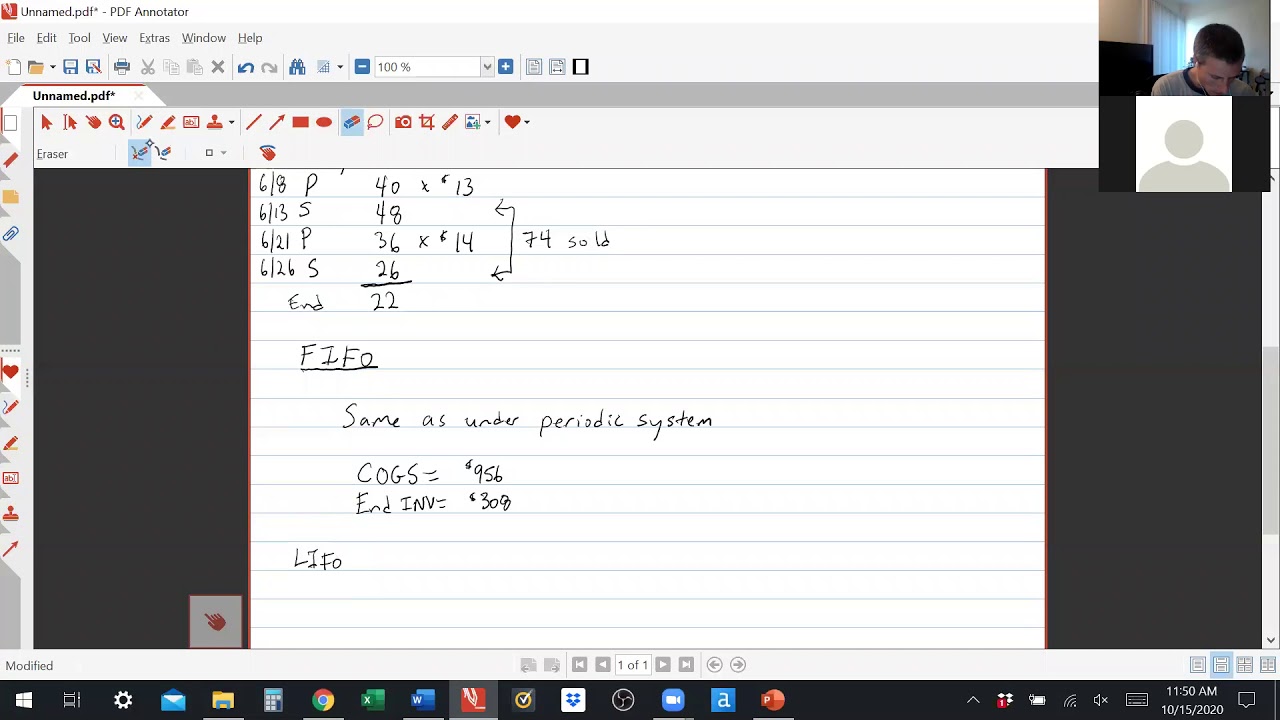 Unnamed.pdf* - PDF Annotator
File Edit Tool View Extras Window Help
100 %
Unnamed.pdf*
Eraser
6/8 P 40 x $13
6/13 S 48
6/21 P 36 x $14 74 sold
6/26 S 26
End 22
FIFO
Same as under periodic system
COGS= $956
End INV= $308
LIFO
1 of 1
Modified
11:50 AM
10/15/2020